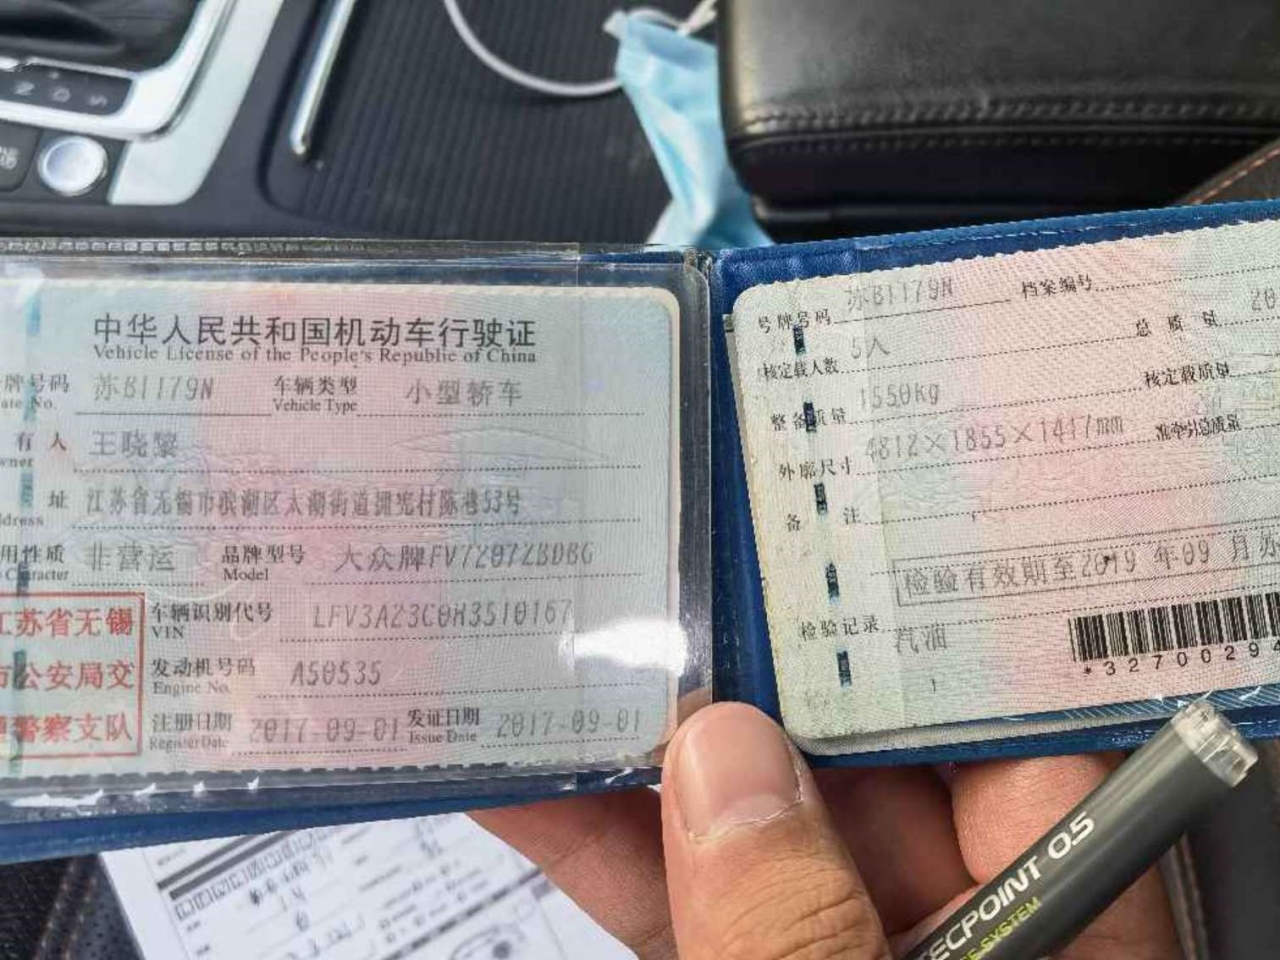 中华人民共和国机动车行驶证
Vehicle License of the People's Republic of China
牌号码 苏B1179N 车辆类型 小型轿车
ate No. Vehicle Type
有人 王晓黎
wner
址 江苏省无锡市滨湖区太湖街道拥宪村陈巷53号
ddress
用性质 非营运 品牌型号 大众牌FV7207ZBDBG
Character Model
江苏省无锡
市公安局交
通警察支队
车辆识别代号 LFV3A23C0H3510167
VIN
发动机号码 A50535
Engine No.
注册日期 2017-09-01 发证日期 2017-09-01
Register Date Issue Date
号牌号码 苏B1179N 档案编号
核定载人数 5人 总质量 20
整备质量 1550kg 核定载质量
外廓尺寸 4812×1855×1417mm 准牵引总质量
备注
检验有效期至2019年09月苏
检验记录 汽油
*32700294
TECPOINT 0.5
E-SYSTEM